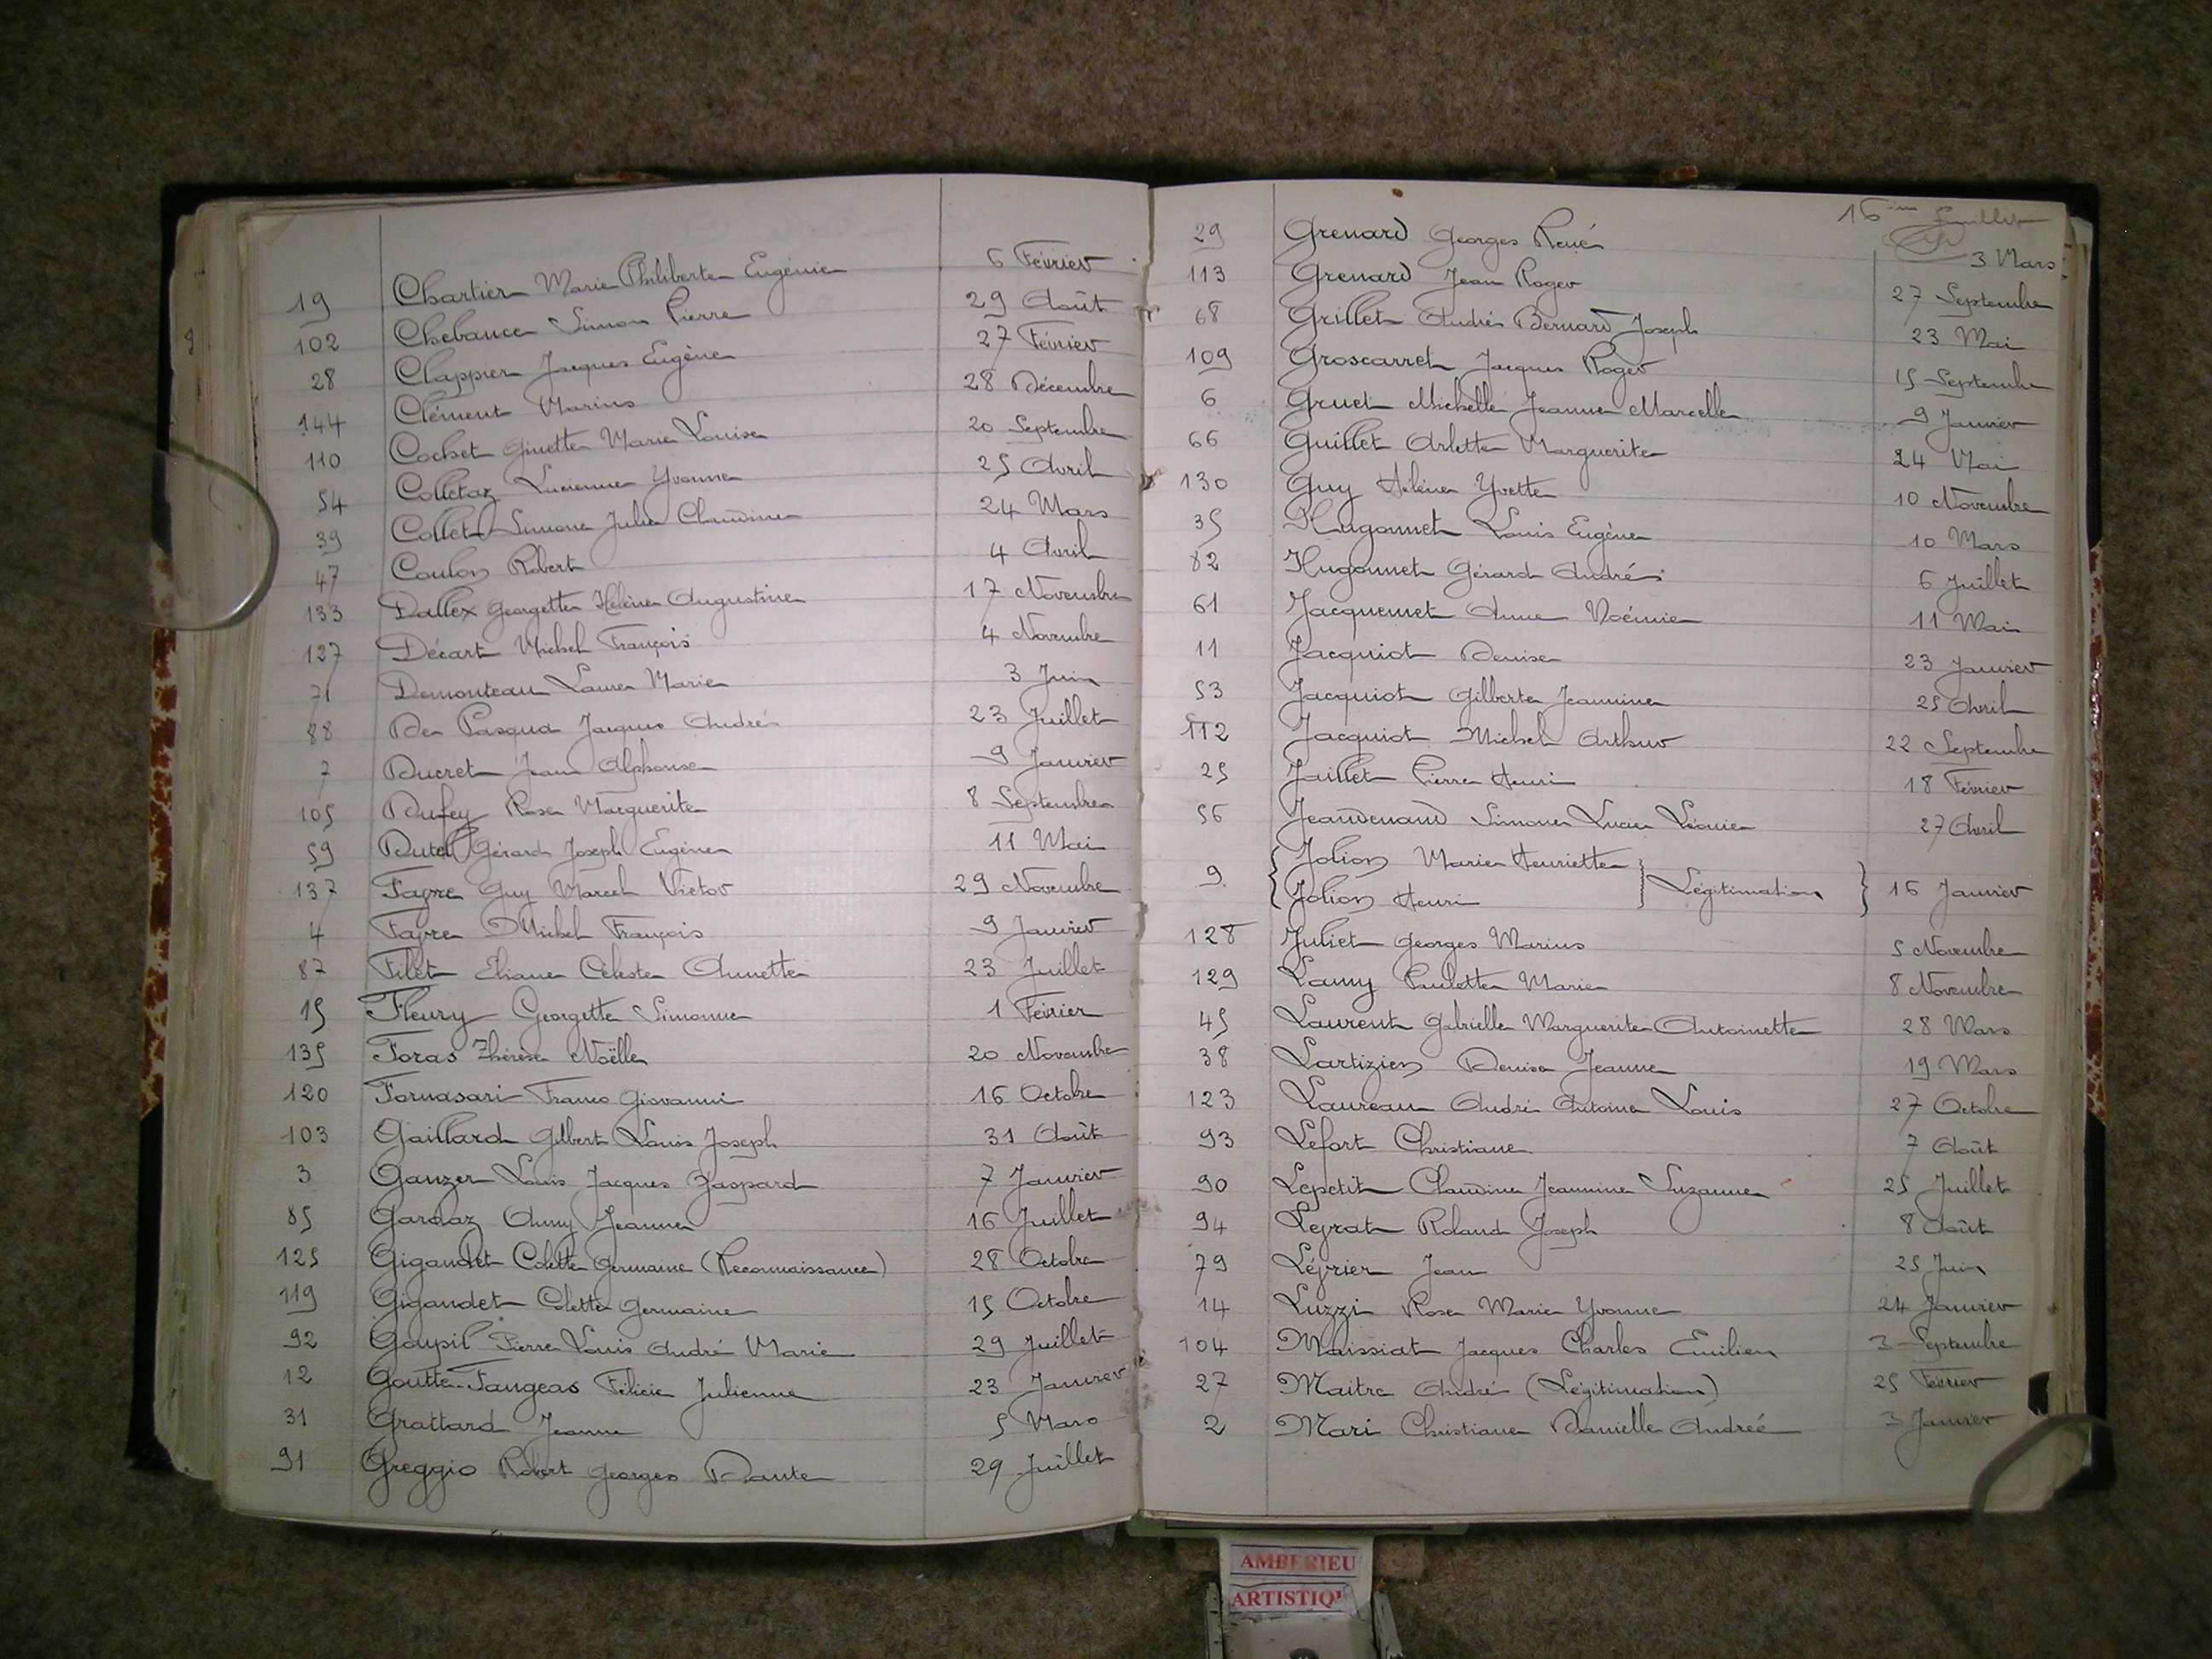 19 Chartier Marie Philiberte Eugénie 6 Février
102 Chebance Simon Pierre 29 Août
28 Clappier Jacques Eugène 27 Février
144 Clément Marius 28 Décembre
110 Cochet Ginette Marie Louise 20 Septembre
54 Colletaz Lucienne Yvonne 25 Avril
39 Collet Simone Julie Claudine 24 Mars
47 Coulon Robert 4 Avril
133 Dallex Georgette Hélène Augustine 17 Novembre
127 Décart Michel François 4 Novembre
71 Demonteau Laure Marie 3 Juin
88 De Pasqua Jacques André 23 Juillet
7 Ducret Jean Alphonse 9 Janvier
105 Dufey Rose Marguerite 8 Septembre
59 Gérard Joseph Eugène 11 Mai
137 Fayre Guy Marcel Victor 29 Novembre
4 Fayre Michel François 9 Janvier
87 Filet Eliane Céleste Annette 23 Juillet
15 Fleury Georgette Simonne 1 Février
135 Foras Thérèse Noëlle 20 Novembre
120 Fornasari Franco Giovanni 16 Octobre
103 Gaillard Gilbert Louis Joseph 31 Août
3 Ganzer Louis Jacques Gaspard 7 Janvier
85 Gardaz Anny Jeanne 16 Juillet
125 Gigandet Colette Germaine (Reconnaissance) 28 Octobre
119 Gigandet Colette Germaine 15 Octobre
92 Goupil Pierre Louis André Marie 29 Juillet
12 Goutte-Fangeas Félicie Julienne 23 Janvier
31 Grattard Jeanne 5 Mars
91 Greggio Robert Georges Dante 29 Juillet
16 ème feuillet
29 Grenard Georges René 3 Mars
113 Grenard Jean Roger 27 Septembre
68 Grillet André Bernard Joseph 23 Mai
109 Groscarret Jacques Roger 15 Septembre
6 Gruet Michelle Jeanne Marcelle 9 Janvier
66 Guillet Arlette Marguerite 24 Mai
130 Guy Hélène Yvette 10 Novembre
35 Hugonnet Louis Eugène 10 Mars
82 Hugonnet Gérard André 6 Juillet
61 Jacquemet Anne Noémie 11 Mai
11 Jacquiot Denise 23 Janvier
53 Jacquiot Gilberte Jeannine 25 Avril
112 Jacquiot Michel Arthur 22 Septembre
25 Jaillet Pierre Henri 18 Février
56 Jeandenand Simone Lucie Léonie 27 Avril
Jolion Marie Henriette
9 Légitimation 16 Janvier
Jolion Henri
128 Juliet Georges Marius 5 Novembre
129 Lamy Paulette Marie 8 Novembre
45 Laurent Gabrielle Marguerite Antoinette 28 Mars
38 Lartizien Denise Jeanne 19 Mars
123 Laureau André Antoine Louis 27 Octobre
93 Lefort Christiane 7 Août
90 Lepetit Claudine Jeannine Suzanne 25 Juillet
94 Leyrat Roland Joseph 8 Août
79 Lévrier Jean 25 Juin
14 Luzzi Rose Marie Yvonne 24 Janvier
104 Maissiat Jacques Charles Emilien 3 Septembre
27 Maitre André (Légitimation) 25 Février
2 Mari Christiane Danielle Andrée 3 Janvier
AMBERIEU
ARTISTIQ